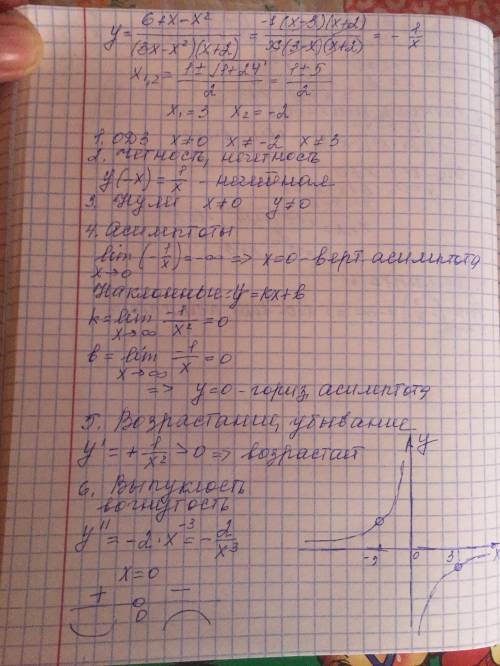 y = (6+x-x²)/((3x-x²)(x+2)) = -1(x-3)(x+2)/(x(3-x)(x+2)) = -1/x
x₁,₂ = (1±√1+24)/2 = (1±5)/2
x₁=3 x₂=-2
1. ОДЗ x≠0 x≠-2 x≠3
2. Четность, нечетность
y(-x) = 1/x - нечетная
3. Нули x≠0 y≠0
4. Асимптоты
lim x→0 (-1/x) = -∞ => x=0 - верт асимптота
Наклонные: y=kx+b
k = lim x→∞ -1/x² = 0
b = lim x→∞ -1/x = 0
=> y=0 - гориз, асимптота,
5. Возрастание, убывание
y' = + 1/x² > 0 => возрастает
6. Выпуклость
вогнутость
y'' = -2·x⁻³ = -2/x³
x=0
+ -
0
0
y
-2 0 3 x